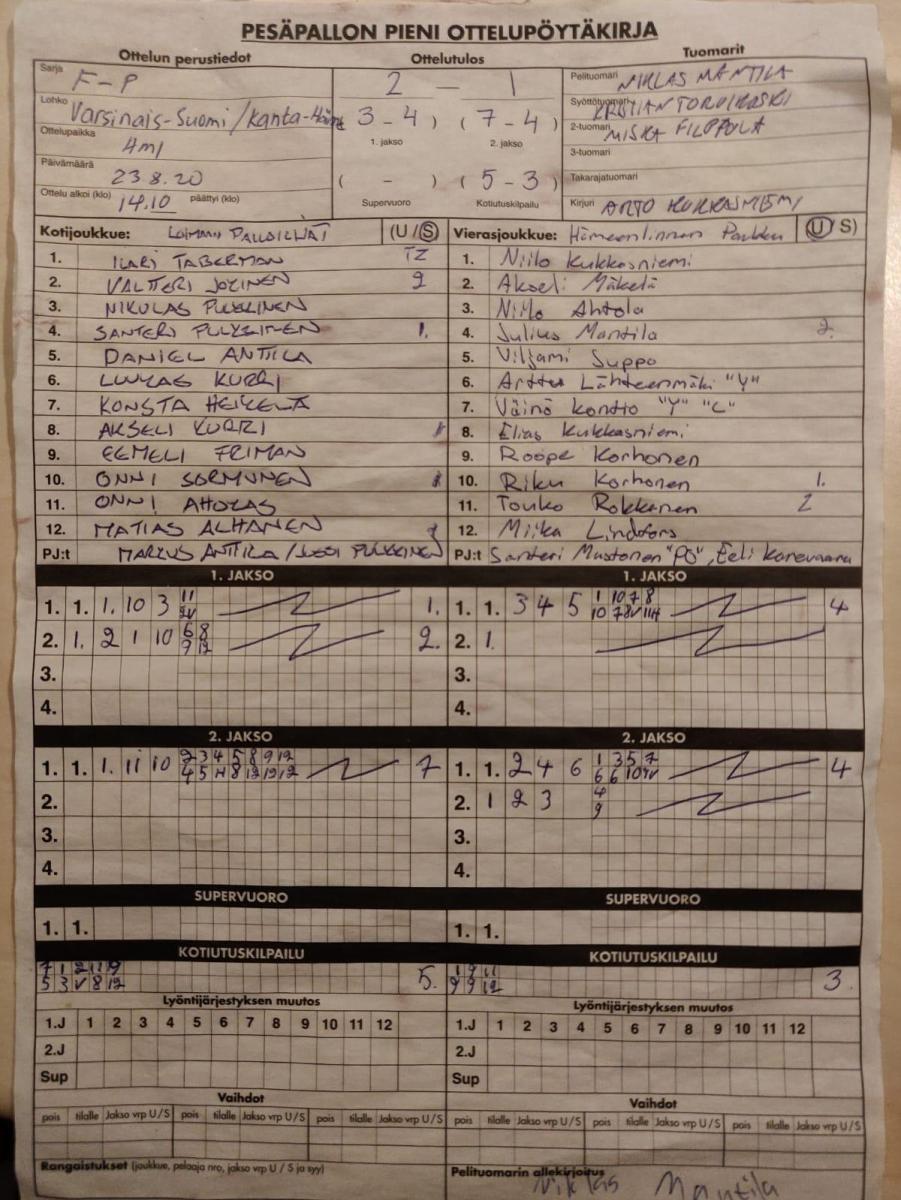 PESÄPALLON PIENI OTTELUPÖYTÄKIRJA
Ottelun perustiedot
Ottelutulos
Tuomarit
Sarja F-P
2 - 1
Pelituomari NIKLAS MANTILA
Lohko Varsinais-Suomi/Kanta-Häme
3 - 4 ) ( 7 - 4 )
1. jakso 2. jakso
Syöttötuomari KRISTIAN
2-tuomari MISKA FILPPULA
Ottelupaikka 4m1
3-tuomari
Päivämäärä 23.8.20
( - ) ( 5 - 3 )
Supervuoro Kotiutuskilpailu
Takarajatuomari
Ottelu alkoi (klo) 14.10 päättyi (klo)
Kirjuri ARTO KUKKASNIEMI
Kotijoukkue: LOIMAAN PALLOILIJAT (U/S)
1. ILARI TABERMAN
2. VALTTERI JOKINEN 2
3. NIKULAS PULKKINEN
4. SANTERI PULKKINEN 1.
5. DANIEL ANTTILA
6. LUUKAS KURRI
7. KONSTA HEIKELÄ
8. AKSELI KURRI
9. EEMELI FRIMAN
10. ONNI SORMUNEN
11. ONNI
12. MATIAS ALHANEN
PJ:t MARKUS ANTTILA / JUSSI PULKKINEN
Vierasjoukkue: Hämeenlinnan (U/S)
1. Niilo Kukkasniemi
2. Akseli Mäkelä
3. Niilo Ahtola
4. Julius Mantila 2.
5. Viljami Suppo
6. Arttu Lähteenmäki "V"
7. Väinö Kontio "V" "C"
8. Elias Kukkasniemi
9. Roope Korhonen
10. Riku Korhonen 1.
11. Touko Rokkanen 2
12. Miika Lindfors
PJ:t Santeri Mustonen "PO", Eeli
1. JAKSO
1. 1. 1. 10 3 1.
2. 1. 2 1 10 6 8 2.
9 12
3.
4.
1. JAKSO
1. 1. 3 4 5 1 10 7 8 4
2. 1.
3.
4.
2. JAKSO
1. 1. 1. 11 10 2 3 4 5 8 9 12 7
2.
3.
4.
2. JAKSO
1. 1. 2 4 6 1 3 5 7 4
2. 1 2 3 4
9
3.
4.
SUPERVUORO
1. 1.
SUPERVUORO
1. 1.
KOTIUTUSKILPAILU
7 1 2 11 9 5.
5 3 V 8 12
KOTIUTUSKILPAILU
1 9 11 3.
9 9 12
Lyöntijärjestyksen muutos
1.J 1 2 3 4 5 6 7 8 9 10 11 12
2.J
Sup
Lyöntijärjestyksen muutos
1.J 1 2 3 4 5 6 7 8 9 10 11 12
2.J
Sup
Vaihdot
pois tilalle Jakso vrp U/S pois tilalle Jakso vrp U/S pois tilalle Jakso vrp U/S
Vaihdot
pois tilalle Jakso vrp U/S pois tilalle Jakso vrp U/S pois tilalle Jakso vrp U/S
Rangaistukset (joukkue, pelaaja nro, jakso vrp U / S ja syy)
Pelituomarin allekirjoitus
Niklas Mantila